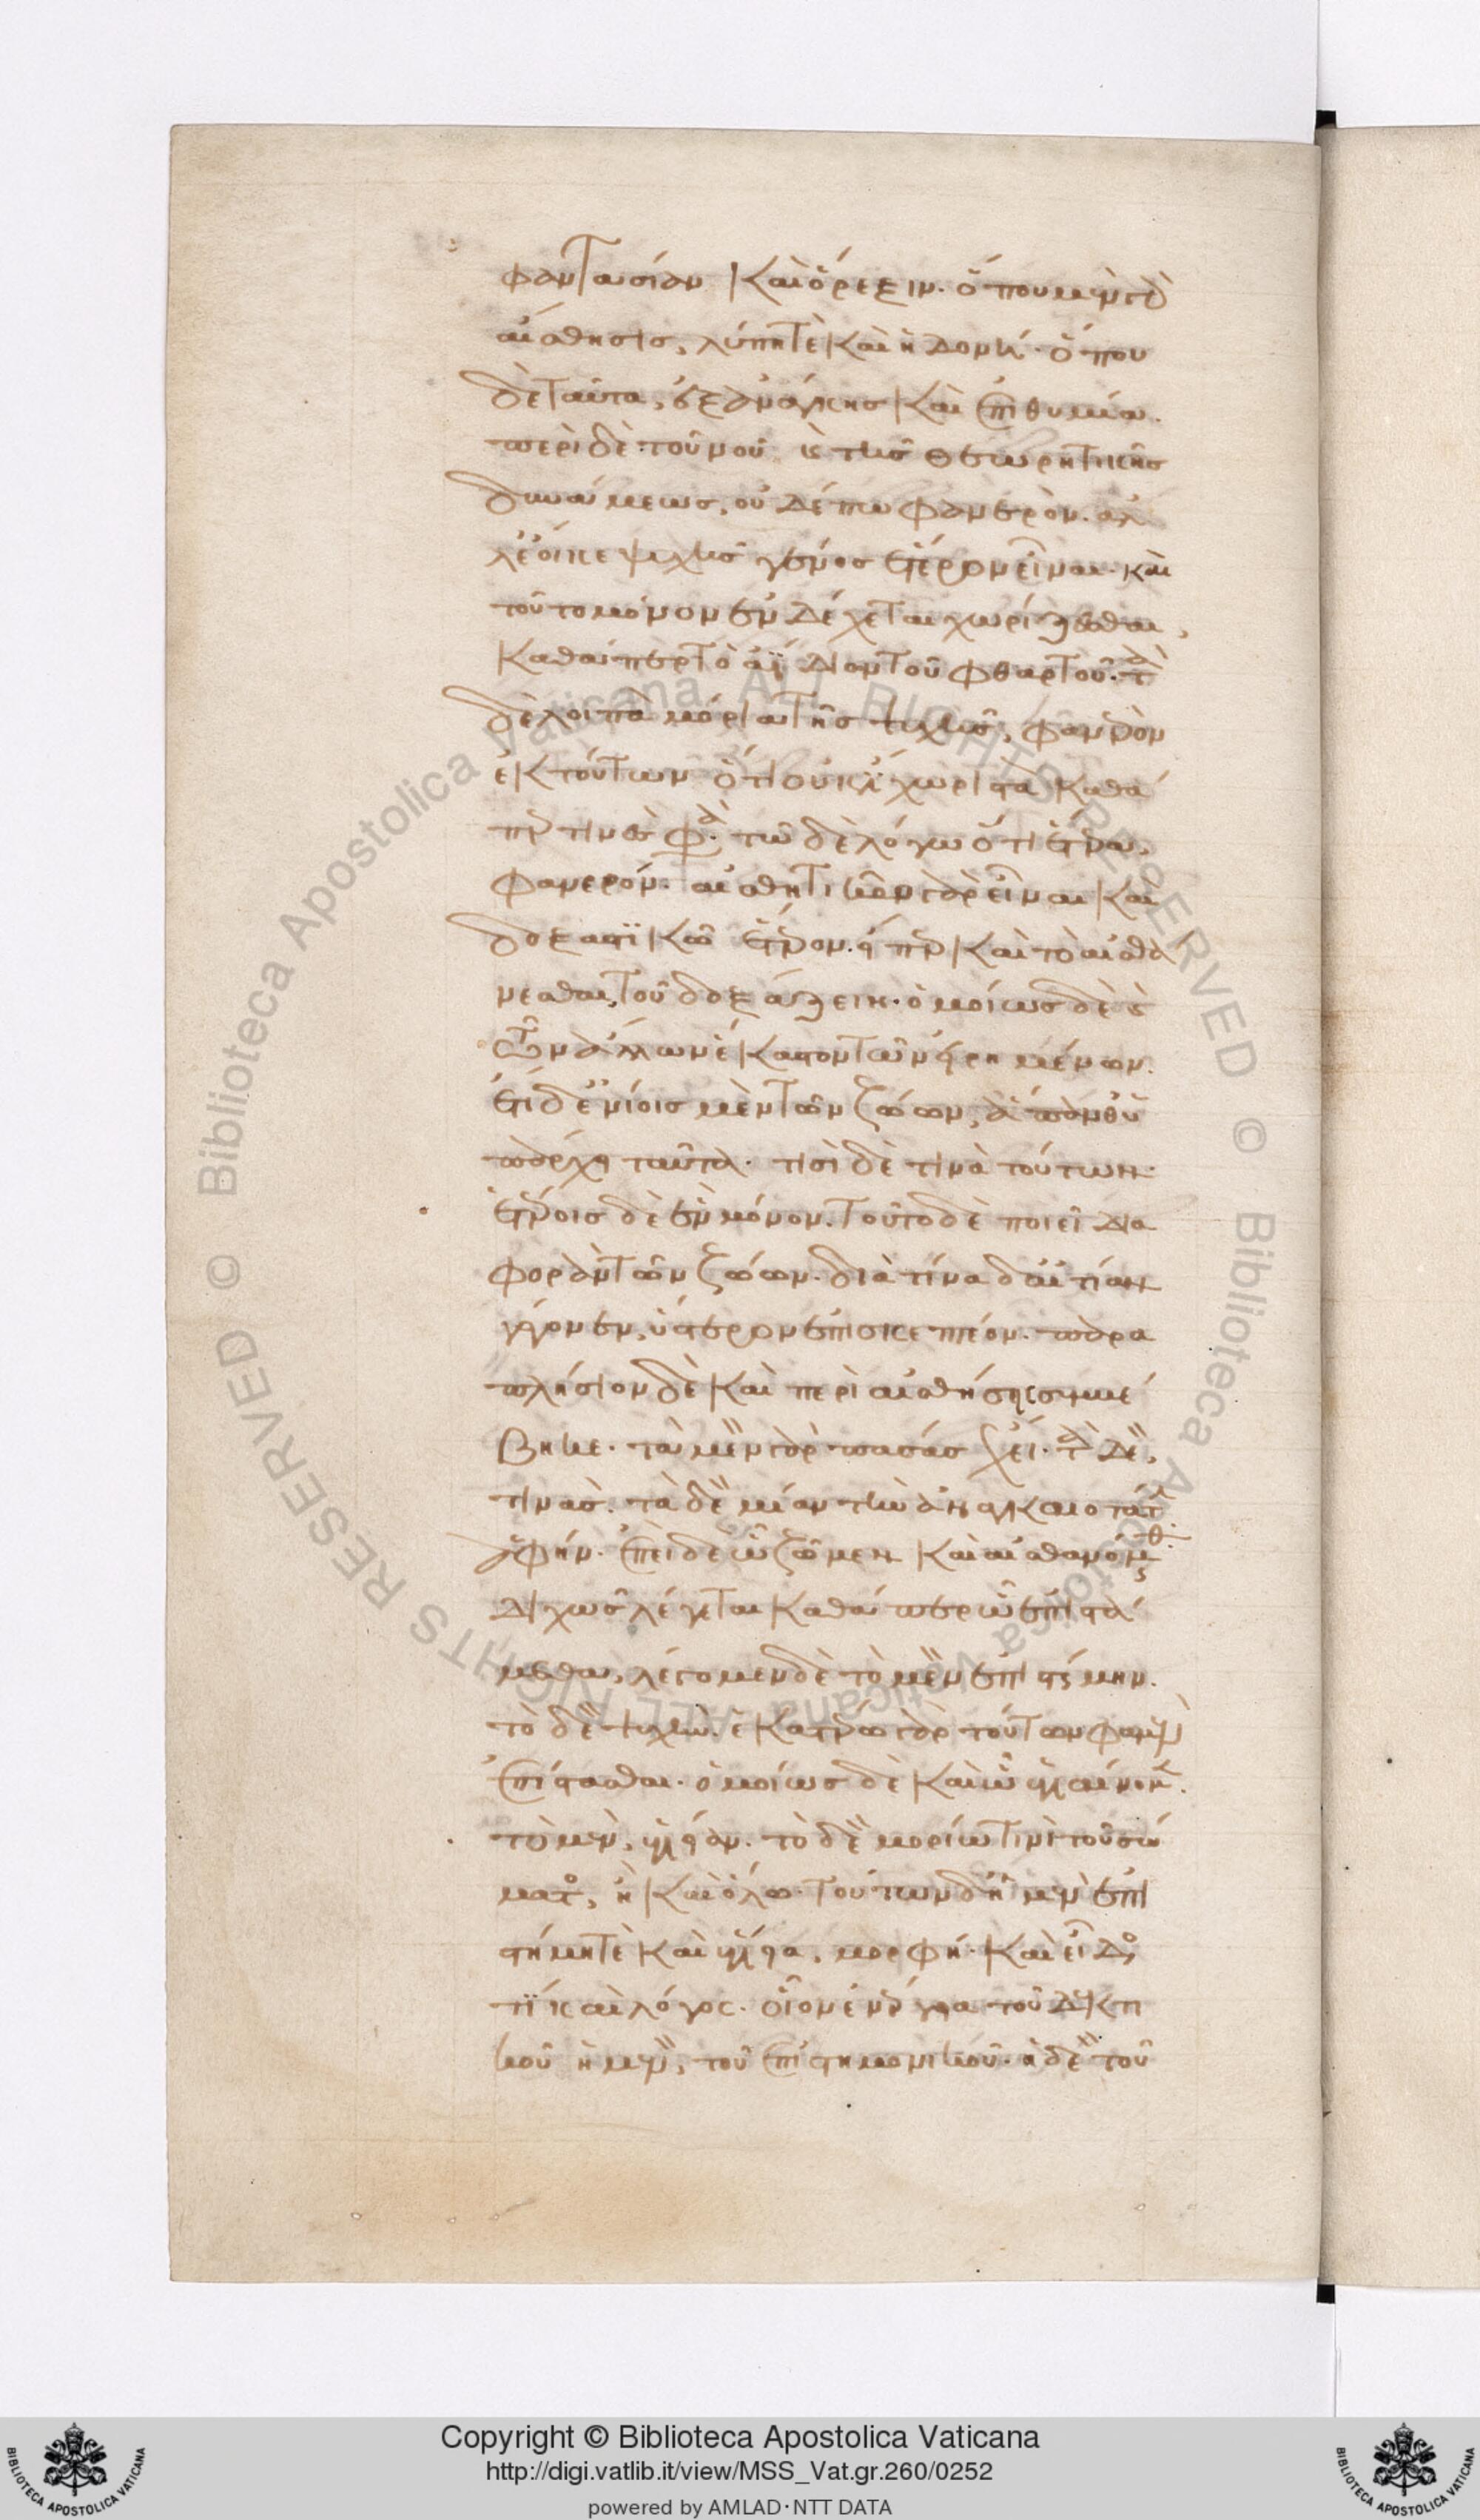 φαντασίαν καὶ ὄρεξιν. ὅπου μὲν γὰρ
αἴσθησις, λύπητὲ καὶ ἡδονή. ὅπου
δὲ ταῦτα, ἐξανάγκης καὶ ἐπιθυμία.
περὶ δὲ τοῦ νοῦ καὶ τῆς θεωρητικῆς
δυνάμεως, οὐδέπω φανερόν. ἀλ
λ' ἔοικε ψυχῆς γένος ἕτερον εἶναι. καὶ
τοῦτο μόνον ἐνδέχεται χωρίζεσθαι,
καθάπερ τὸ ἀΐδιον τοῦ φθαρτοῦ. τὰ
δὲ λοιπὰ μόρια τῆς ψυχῆς, φανερὸν
ἐκ τούτων ὅτι οὐκ ἔστι χωριστὰ καθά
περ τινές φασι. τῷ δὲ λόγω ὅτι ἕτερα,
φανερόν. αἰσθητικῶ γὰρ εἶναι καὶ
δοξαστικῶ ἕτερον. εἴπερ καὶ τὸ αἰσθά
νεσθαι, τοῦ δοξάζειν. ὁμοίως δὲ καὶ
τῶν ἄλλων ἕκαστον τῶν εἰρημένων.
ἔτι δ' ἐνίοις μὲν τῶν ζώων, ἅπανθ' ὑ
πάρχει ταῦτα. τισὶ δὲ τινὰ τούτων.
ἑτέροις δὲ ἓν μόνον. τοῦτο δὲ ποιεῖ δια
φορὰν τῶν ζώων. διὰ τίνα δ' αἰτίαν
γέγονεν, ὕστερον ἐπισκεπτέον. παρα
πλήσιον δὲ καὶ περὶ αἰσθήσεις συμβέ
βηκε. τὰ μὲν γὰρ πάσας ἔχει. τὰ δὲ,
τινάς. τὰ δὲ μίαν τὴν ἀναγκαιοτάτ
ἁφήν. ἐπεὶ δὲ ὧ ζῶμεν καὶ αἰσθανόμεθα
διχῶς λέγεται καθάπερ ὧ ἐπιστά
μεθα, λέγομεν δὲ τὸ μὲν ἐπιστήμην.
τὸ δὲ ψυχήν. ἑκατέρω γὰρ τούτων φαμὲν
ἐπίστασθαι. ὁμοίως δὲ καὶ ὧ ὑγιαίνομεν.
τὸ μὲν, ὑγίεια. τὸ δὲ μορίω τινὶ τοῦ σώ
ματος, ἢ καὶ ὅλω. τούτων δ' ἡ μὲν ἐπι
στήμητὲ καὶ ὑγίεια, μορφή. καὶ εἶδος
τί καὶ λόγος. οἷον ἐνέργεια τοῦ δεκτι
κοῦ ἡ μὲν, τοῦ ἐπιστημονικοῦ. ἡ δὲ τοῦ
Copyright © Biblioteca Apostolica Vaticana
http://digi.vatlib.it/view/MSS_Vat.gr.260/0252
powered by AMLAD·NTT DATA